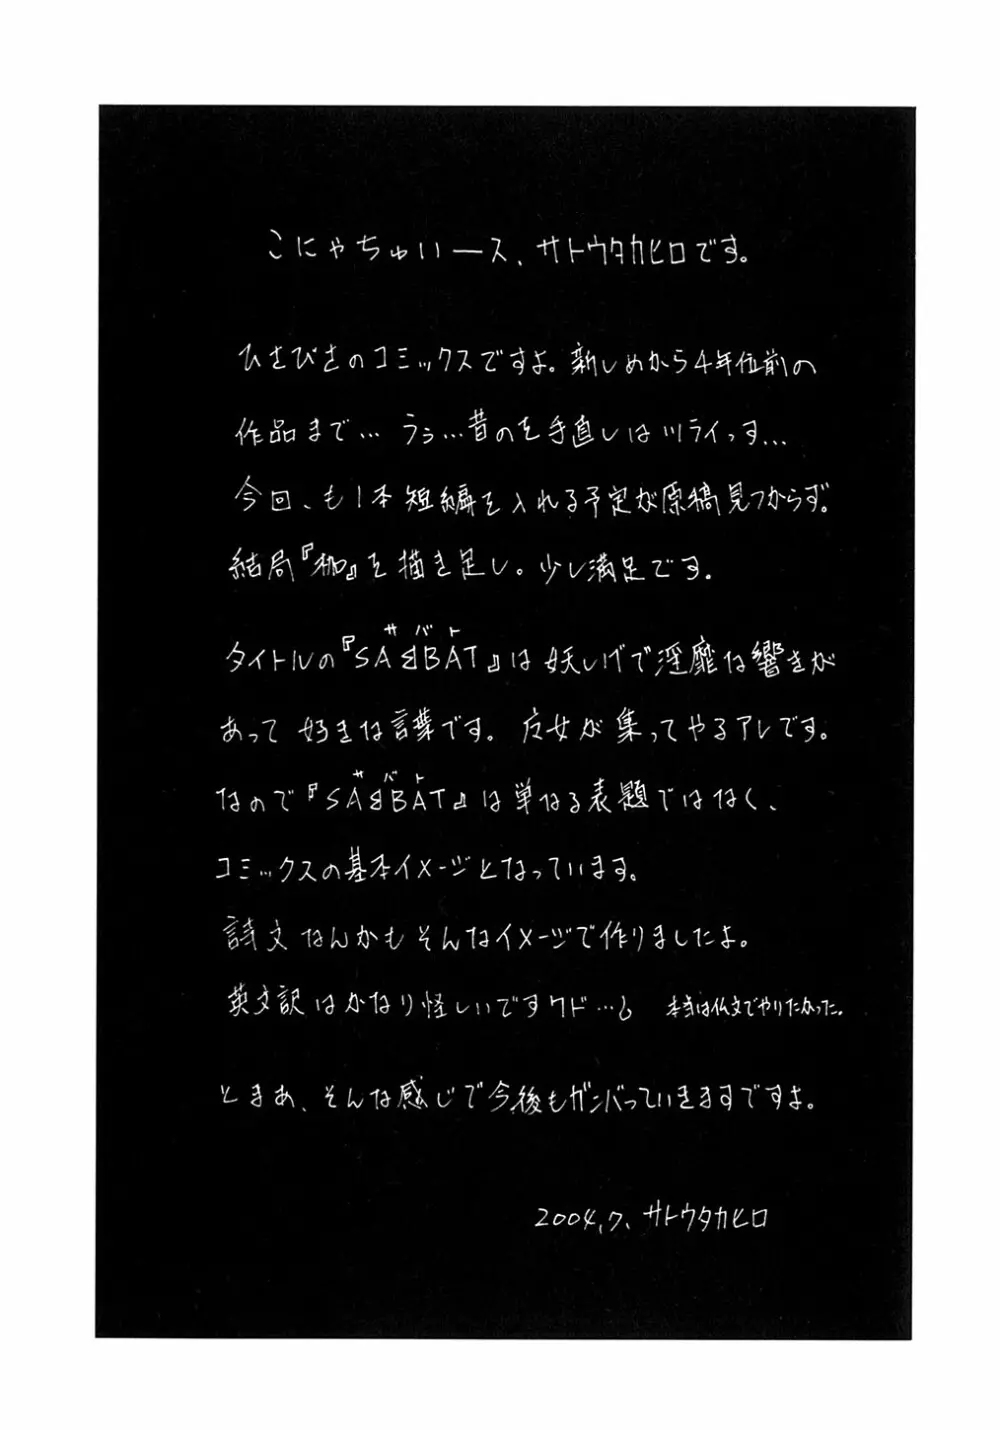 こにゃちゅいース、サトウタカヒロです。
ひさびさのコミックスですよ。新しめから4年位前の
作品まで… うぅ…昔のを手直しはツライっす…
今回、も1本短編を入れる予定が原稿見つからず。
結局『枷』を描き足し。少し満足です。
サバト
タイトルの『SABBAT』は妖しげで淫靡な響きが
あって好きな言葉です。 女が集ってやるアレです。
サバト
なので『SABBAT』は単なる表題ではなく、
コミックスの基本イメージとなっています。
詩文なんかもそんなイメージで作りましたよ。
英文訳はかなり怪しいですケド… 本当は仏文でやりたかった。
とまあ、そんな感じで今後もガンバっていきますですよ。
2004,7、サトウタカヒロ